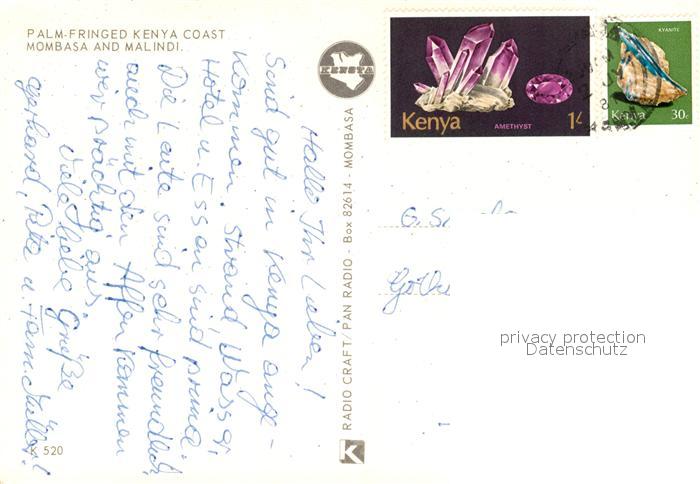 PALM-FRINGED KENYA COAST
MOMBASA AND MALINDI.
Hallo Ihr Lieben!
Sind gut in Kenya ange-
kommen. Strand, Wasser,
Hotel u. Essen sind prima.
Die Leute sind sehr freundlich
auch mit den Affen kommen
wir prächtig aus.
Viele liebe Grüße
Gerhard, u. Fam.
K 520
KENSTA
RADIO CRAFT/PAN RADIO - Box 82614 - MOMBASA
K
Kenya
AMETHYST
1/-
KYANITE
Kenya
30c
privacy protection
Datenschutz